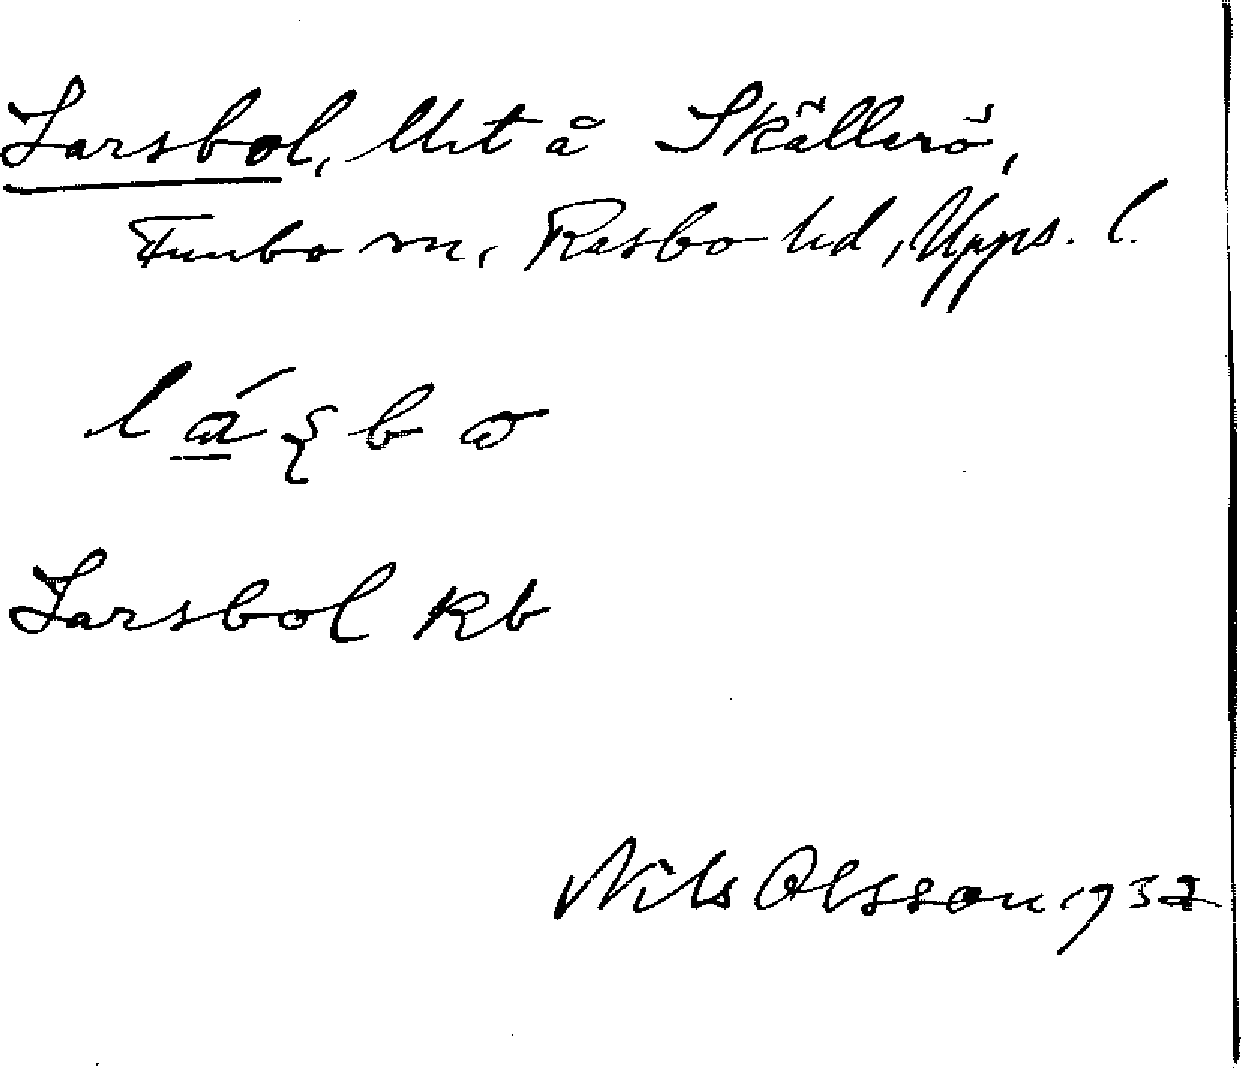 Larsbol, å Skällerö,
Funbo sn, Rasbo hd, Upps. l.
Larsbol Kb
Nils Olsson